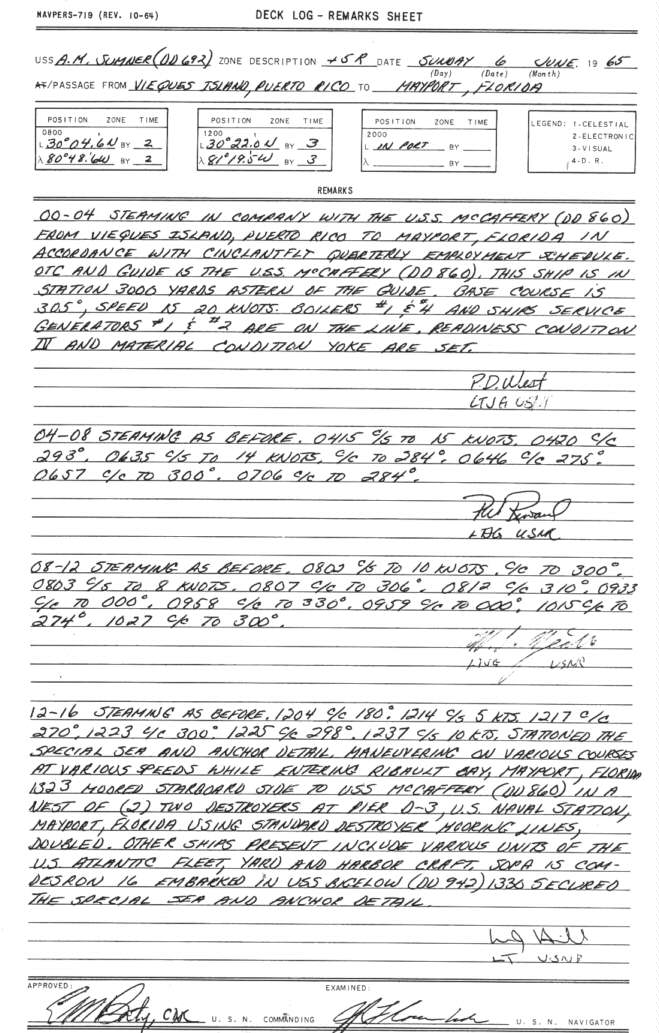 NAVPERS-719 (REV. 10-64) DECK LOG – REMARKS SHEET
USS A.M. SUMNER (DD 692) ZONE DESCRIPTION +5 R DATE SUNDAY 6 JUNE 19 65
(Day) (Date) (Month)
AT/PASSAGE FROM VIEQUES ISLAND, PUERTO RICO TO MAYPORT, FLORIDA
POSITION ZONE TIME
0800
L 30°04.6N BY 2
λ 80°48.6W BY 2
POSITION ZONE TIME
1200
L 30°22.0N BY 3
λ 81°19.5W BY 3
POSITION ZONE TIME
2000
L IN PORT BY
λ BY
LEGEND: 1-CELESTIAL
2-ELECTRONIC
3-VISUAL
4-D. R.
REMARKS
00-04 STEAMING IN COMPANY WITH THE U.S.S. McCAFFERY (DD 860)
FROM VIEQUES ISLAND, PUERTO RICO TO MAYPORT, FLORIDA IN
ACCORDANCE WITH CINCLANTFLT QUARTERLY EMPLOYMENT SCHEDULE.
OTC AND GUIDE IS THE U.S.S. McCAFFERY (DD 860). THIS SHIP IS IN
STATION 3000 YARDS ASTERN OF THE GUIDE. BASE COURSE IS
305°, SPEED IS 20 KNOTS. BOILERS #1 & #4 AND SHIPS SERVICE
GENERATORS #1 & #2 ARE ON THE LINE. READINESS CONDITION
IV AND MATERIAL CONDITION YOKE ARE SET.
P.D. West
LTJG USN
04-08 STEAMING AS BEFORE. 0415 C/S TO 15 KNOTS. 0420 C/C
293°. 0635 C/S TO 14 KNOTS, C/C TO 284°. 0646 C/C 275°.
0657 C/C TO 300°. 0706 C/C TO 284°.
LTJG USNR
08-12 STEAMING AS BEFORE. 0802 C/S TO 10 KNOTS. C/C TO 300°.
0803 C/S TO 8 KNOTS. 0807 C/C TO 306°. 0812 C/C 310°. 0933
C/C TO 000°. 0958 C/C TO 330°. 0959 C/C TO 000°. 1015 C/C TO
274°. 1027 C/C TO 300°.
LTJG USNR
12-16 STEAMING AS BEFORE. 1204 C/C 180°. 1214 C/S 5 KTS. 1217 C/C
270°. 1223 C/C 300°. 1225 C/C 298°. 1237 C/S 10 KTS. STATIONED THE
SPECIAL SEA AND ANCHOR DETAIL. MANEUVERING ON VARIOUS COURSES
AT VARIOUS SPEEDS WHILE ENTERING RIBAULT BAY, MAYPORT, FLORIDA
1323 MOORED STARBOARD SIDE TO USS McCAFFERY (DD 860) IN A
NEST OF (2) TWO DESTROYERS AT PIER D-3, U.S. NAVAL STATION,
MAYPORT, FLORIDA USING STANDARD DESTROYER MOORING LINES,
DOUBLED. OTHER SHIPS PRESENT INCLUDE VARIOUS UNITS OF THE
U.S. ATLANTIC FLEET, YARD AND HARBOR CRAFT. SOPA IS COM-
DESRON 16 EMBARKED IN USS BIGELOW (DD 942) 1330 SECURED
THE SPECIAL SEA AND ANCHOR DETAIL.
Hill
LT USNR
APPROVED: EXAMINED:
CDR U. S. N. COMMANDING U. S. N. NAVIGATOR